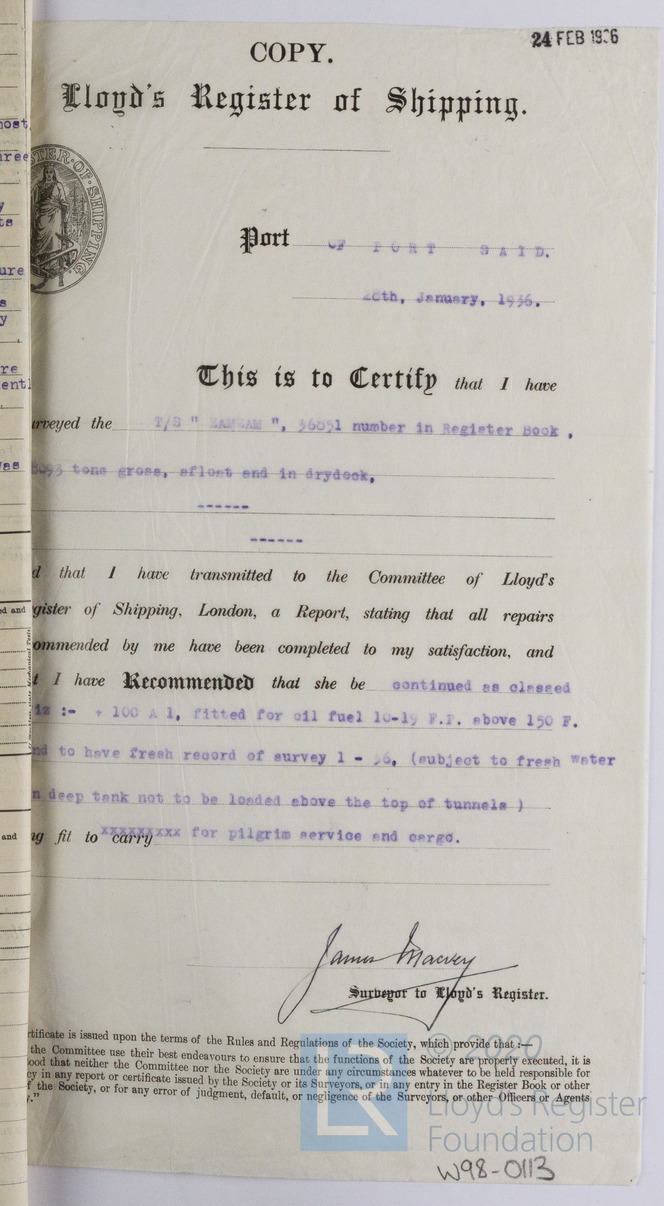 24 FEB 1936
COPY.
Lloyd's Register of Shipping.
ost
hree
TER·OF·SHIPPING
y
ts
Port OF PORT SAID.
ure
s
28th, January, 1936.
y
re
entl
This is to Certify that I have
rveyed the T/S " ZAMZAM ", 36851 number in Register Book ,
as
tons gross, afloat and in drydock,
------
------
d that I have transmitted to the Committee of Lloyd's
ed and
gister of Shipping, London, a Report, stating that all repairs
ommended by me have been completed to my satisfaction, and
t I have Recommended that she be continued as classed
iz :- + 100 A 1, fitted for oil fuel 10-19 F.P. above 150 F.
nd to have fresh record of survey 1 - 36, (subject to fresh water
n deep tank not to be loaded above the top of tunnels )
and
ng fit to carry xxxxxxxxx for pilgrim service and cargo.
James Macvey
Surveyor to Lloyd's Register.
rtificate is issued upon the terms of the Rules and Regulations of the Society, which provide that :—
the Committee use their best endeavours to ensure that the functions of the Society are properly executed, it is
ood that neither the Committee nor the Society are under any circumstances whatever to be held responsible for
cy in any report or certificate issued by the Society or its Surveyors, or in any entry in the Register Book or other
f the Society, or for any error of judgment, default, or negligence of the Surveyors, or other Officers or Agents
y."
© 2020
Lloyd's Register
Foundation
W98-0113